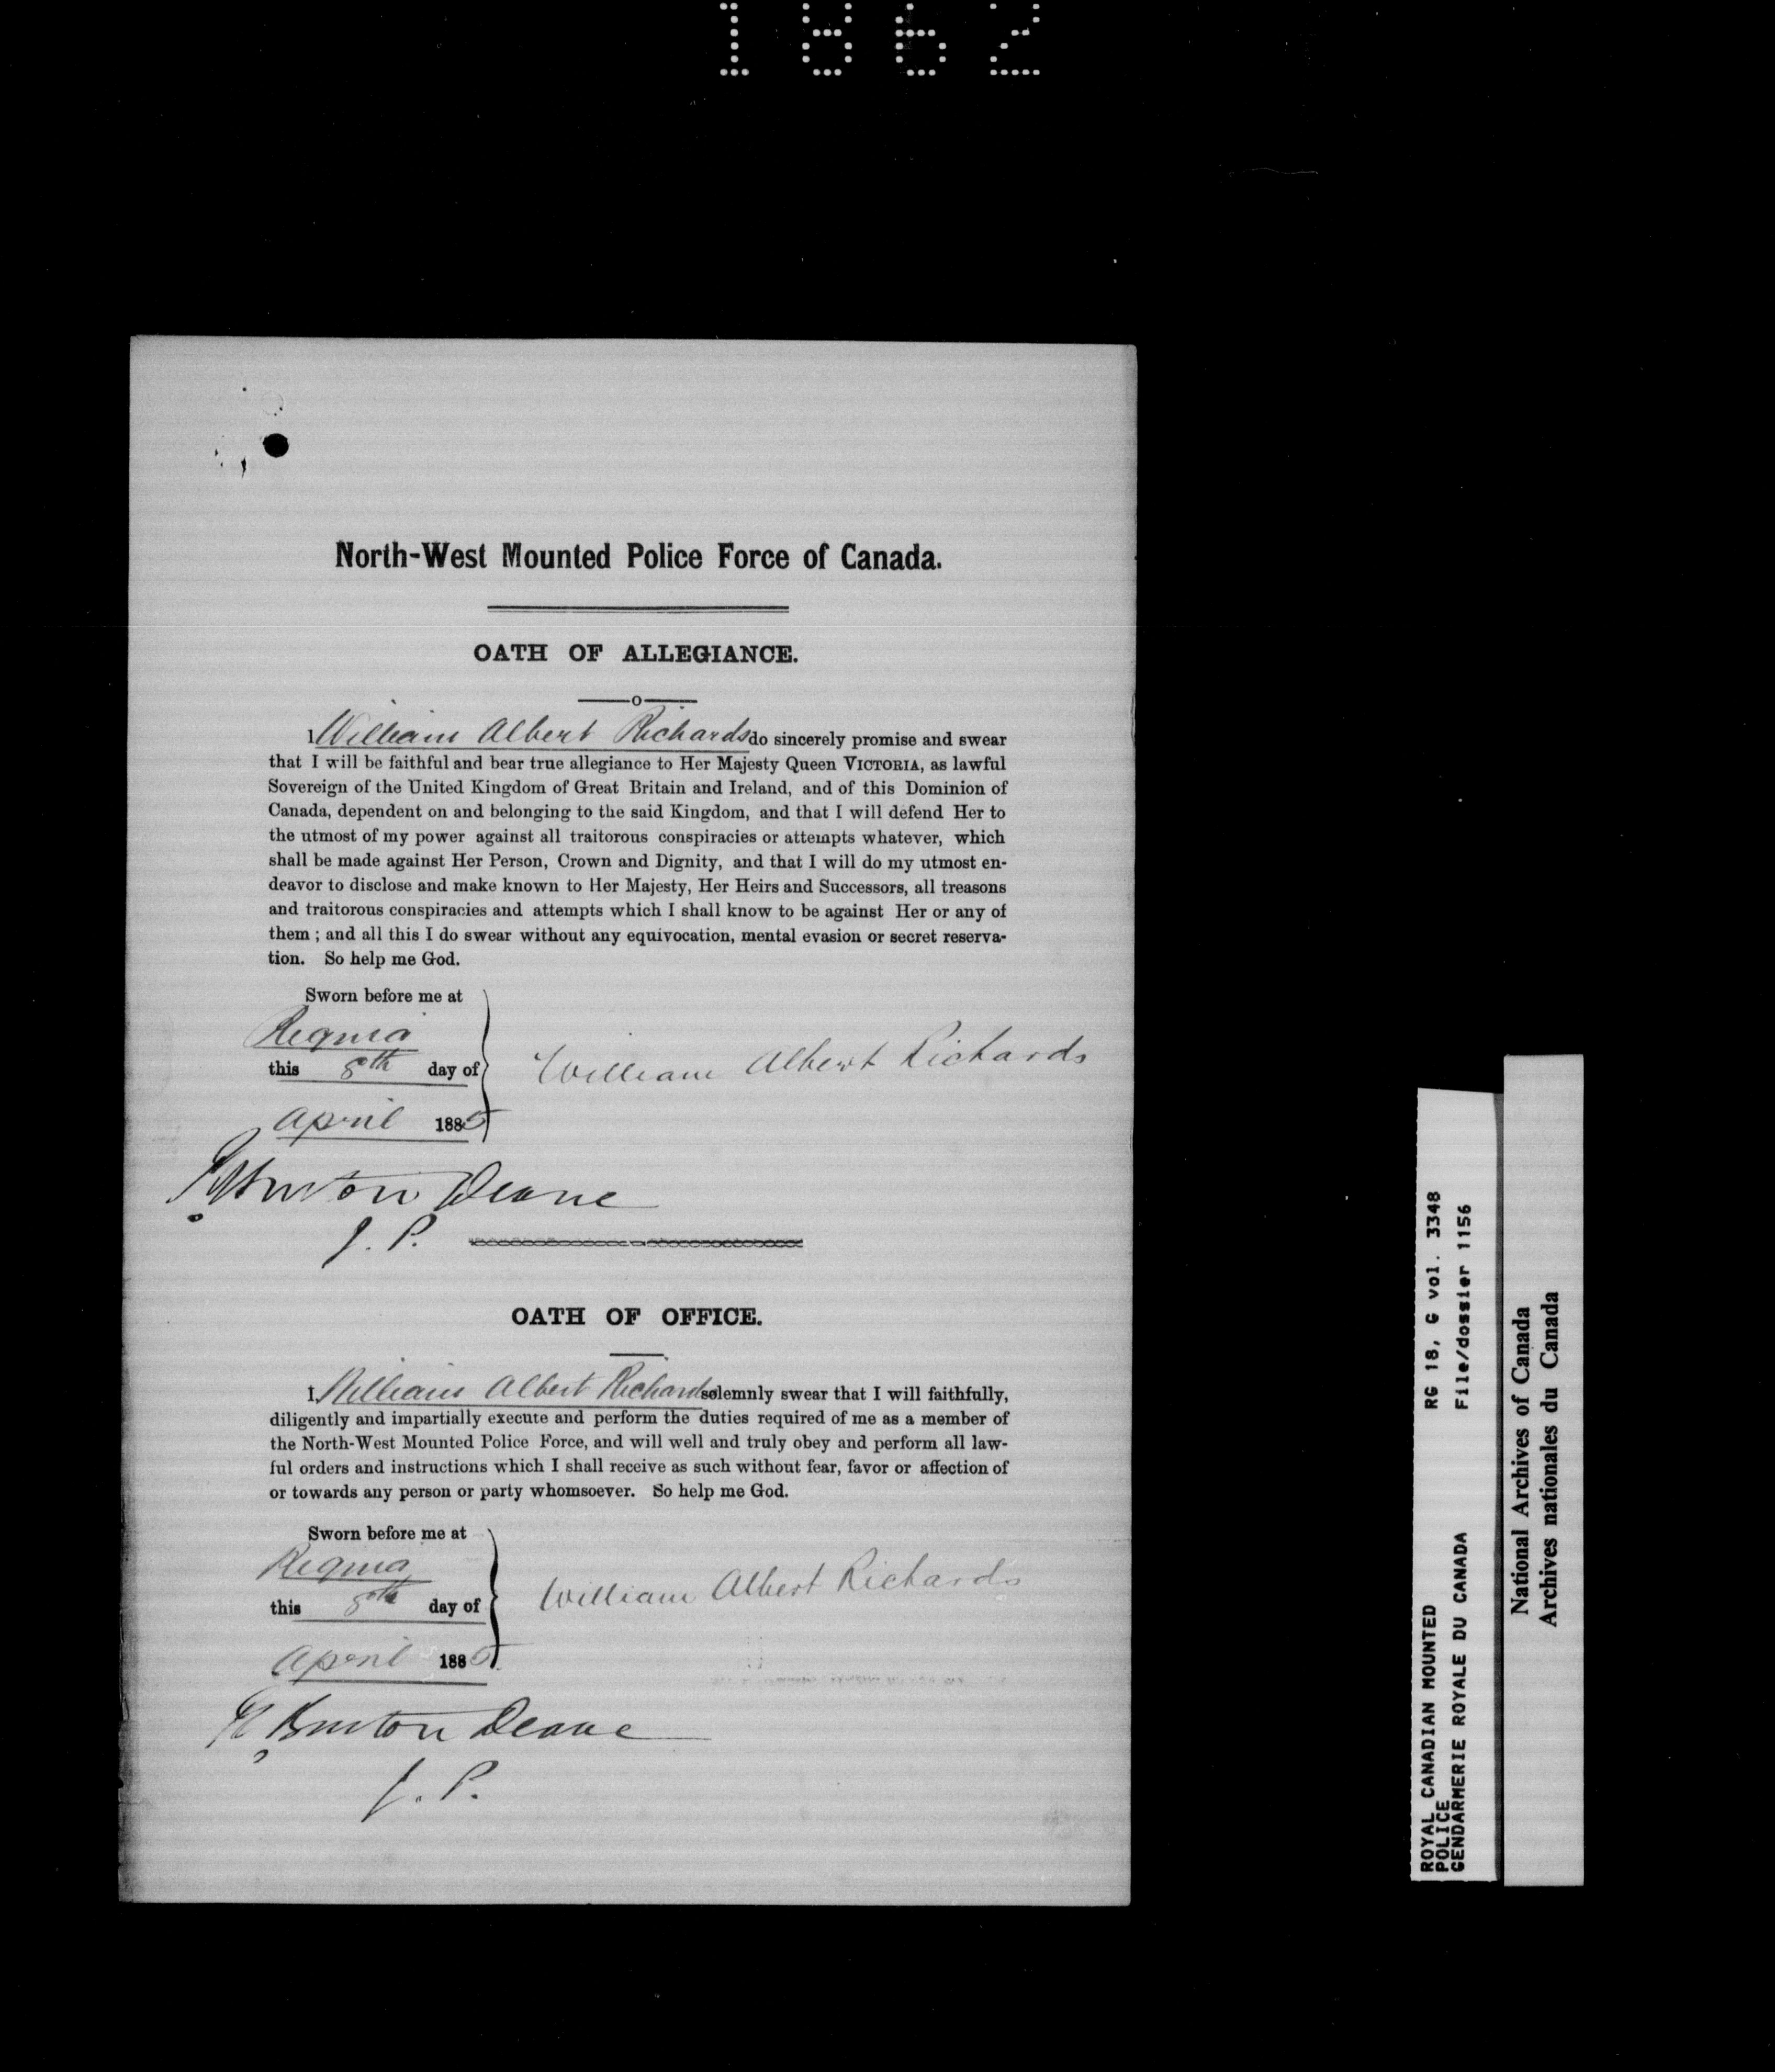 1862
North-West Mounted Police Force of Canada.
OATH OF ALLEGIANCE.
I William Albert Richards do sincerely promise and swear
that I will be faithful and bear true allegiance to Her Majesty Queen VICTORIA, as lawful
Sovereign of the United Kingdom of Great Britain and Ireland, and of this Dominion of
Canada, dependent on and belonging to the said Kingdom, and that I will defend Her to
the utmost of my power against all traitorous conspiracies or attempts whatever, which
shall be made against Her Person, Crown and Dignity, and that I will do my utmost en-
deavor to disclose and make known to Her Majesty, Her Heirs and Successors, all treasons
and traitorous conspiracies and attempts which I shall know to be against Her or any of
them ; and all this I do swear without any equivocation, mental evasion or secret reserva-
tion. So help me God.
Sworn before me at
Regina
this 8th day of
April 1885
William Albert Richards
R Burton Deane
J. P.
OATH OF OFFICE.
I, William Albert Richards solemnly swear that I will faithfully,
diligently and impartially execute and perform the duties required of me as a member of
the North-West Mounted Police Force, and will well and truly obey and perform all law-
ful orders and instructions which I shall receive as such without fear, favor or affection of
or towards any person or party whomsoever. So help me God.
Sworn before me at
Regina
this 8th day of
April 1885
William Albert Richards
R Burton Deane
J. P.
ROYAL CANADIAN MOUNTED RG 18, G vol. 3348
POLICE
GENDARMERIE ROYALE DU CANADA File/dossier 1156
National Archives of Canada
Archives nationales du Canada